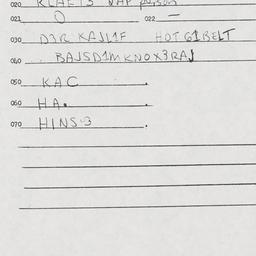 020 KLAETS VAP person
021 0 022 —
030 DJR KAJL1F HOT G1BELT
060 BAJSD1MKNOX3RAJ
050 KAC
060 HA.
070 HINS-3